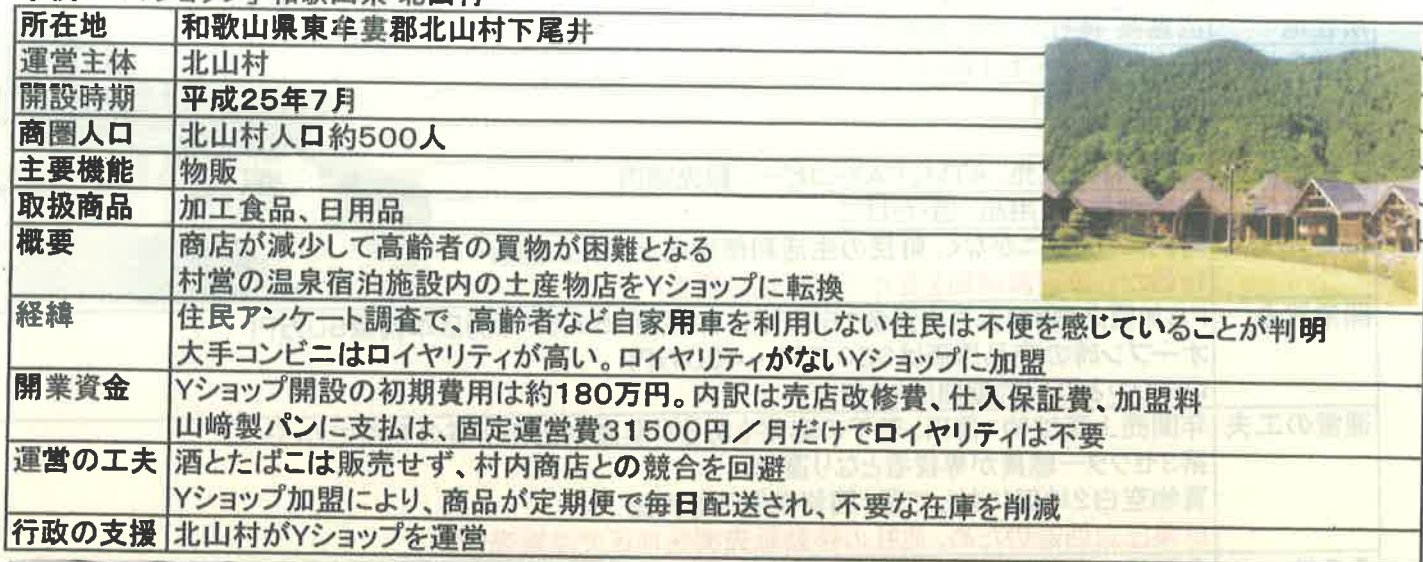 所在地 和歌山県東牟婁郡北山村下尾井
運営主体 北山村
開設時期 平成25年7月
商圏人口 北山村人口約500人
主要機能 物販
取扱商品 加工食品、日用品
概要 商店が減少して高齢者の買物が困難となる
村営の温泉宿泊施設内の土産物店をYショップに転換
経緯 住民アンケート調査で、高齢者など自家用車を利用しない住民は不便を感じていることが判明
大手コンビニはロイヤリティが高い。ロイヤリティがないYショップに加盟
開業資金 Yショップ開設の初期費用は約180万円。内訳は売店改修費、仕入保証費、加盟料
山﨑製パンに支払は、固定運営費31500円／月だけでロイヤリティは不要
運営の工夫 酒とたばこは販売せず、村内商店との競合を回避
Yショップ加盟により、商品が定期便で毎日配送され、不要な在庫を削減
行政の支援 北山村がYショップを運営